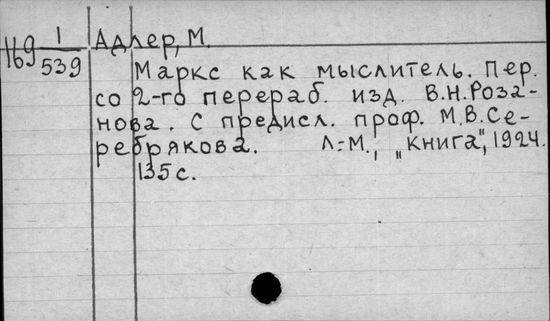 169 1/539
Адлер, М.
Маркс как мыслитель. Пер.
со 2-го перераб. изд. В.Н.Роза-
нова. С предисл. проф. М.В.Се-
ребрякова. Л.-М., „Книга", 1924.
135 с.